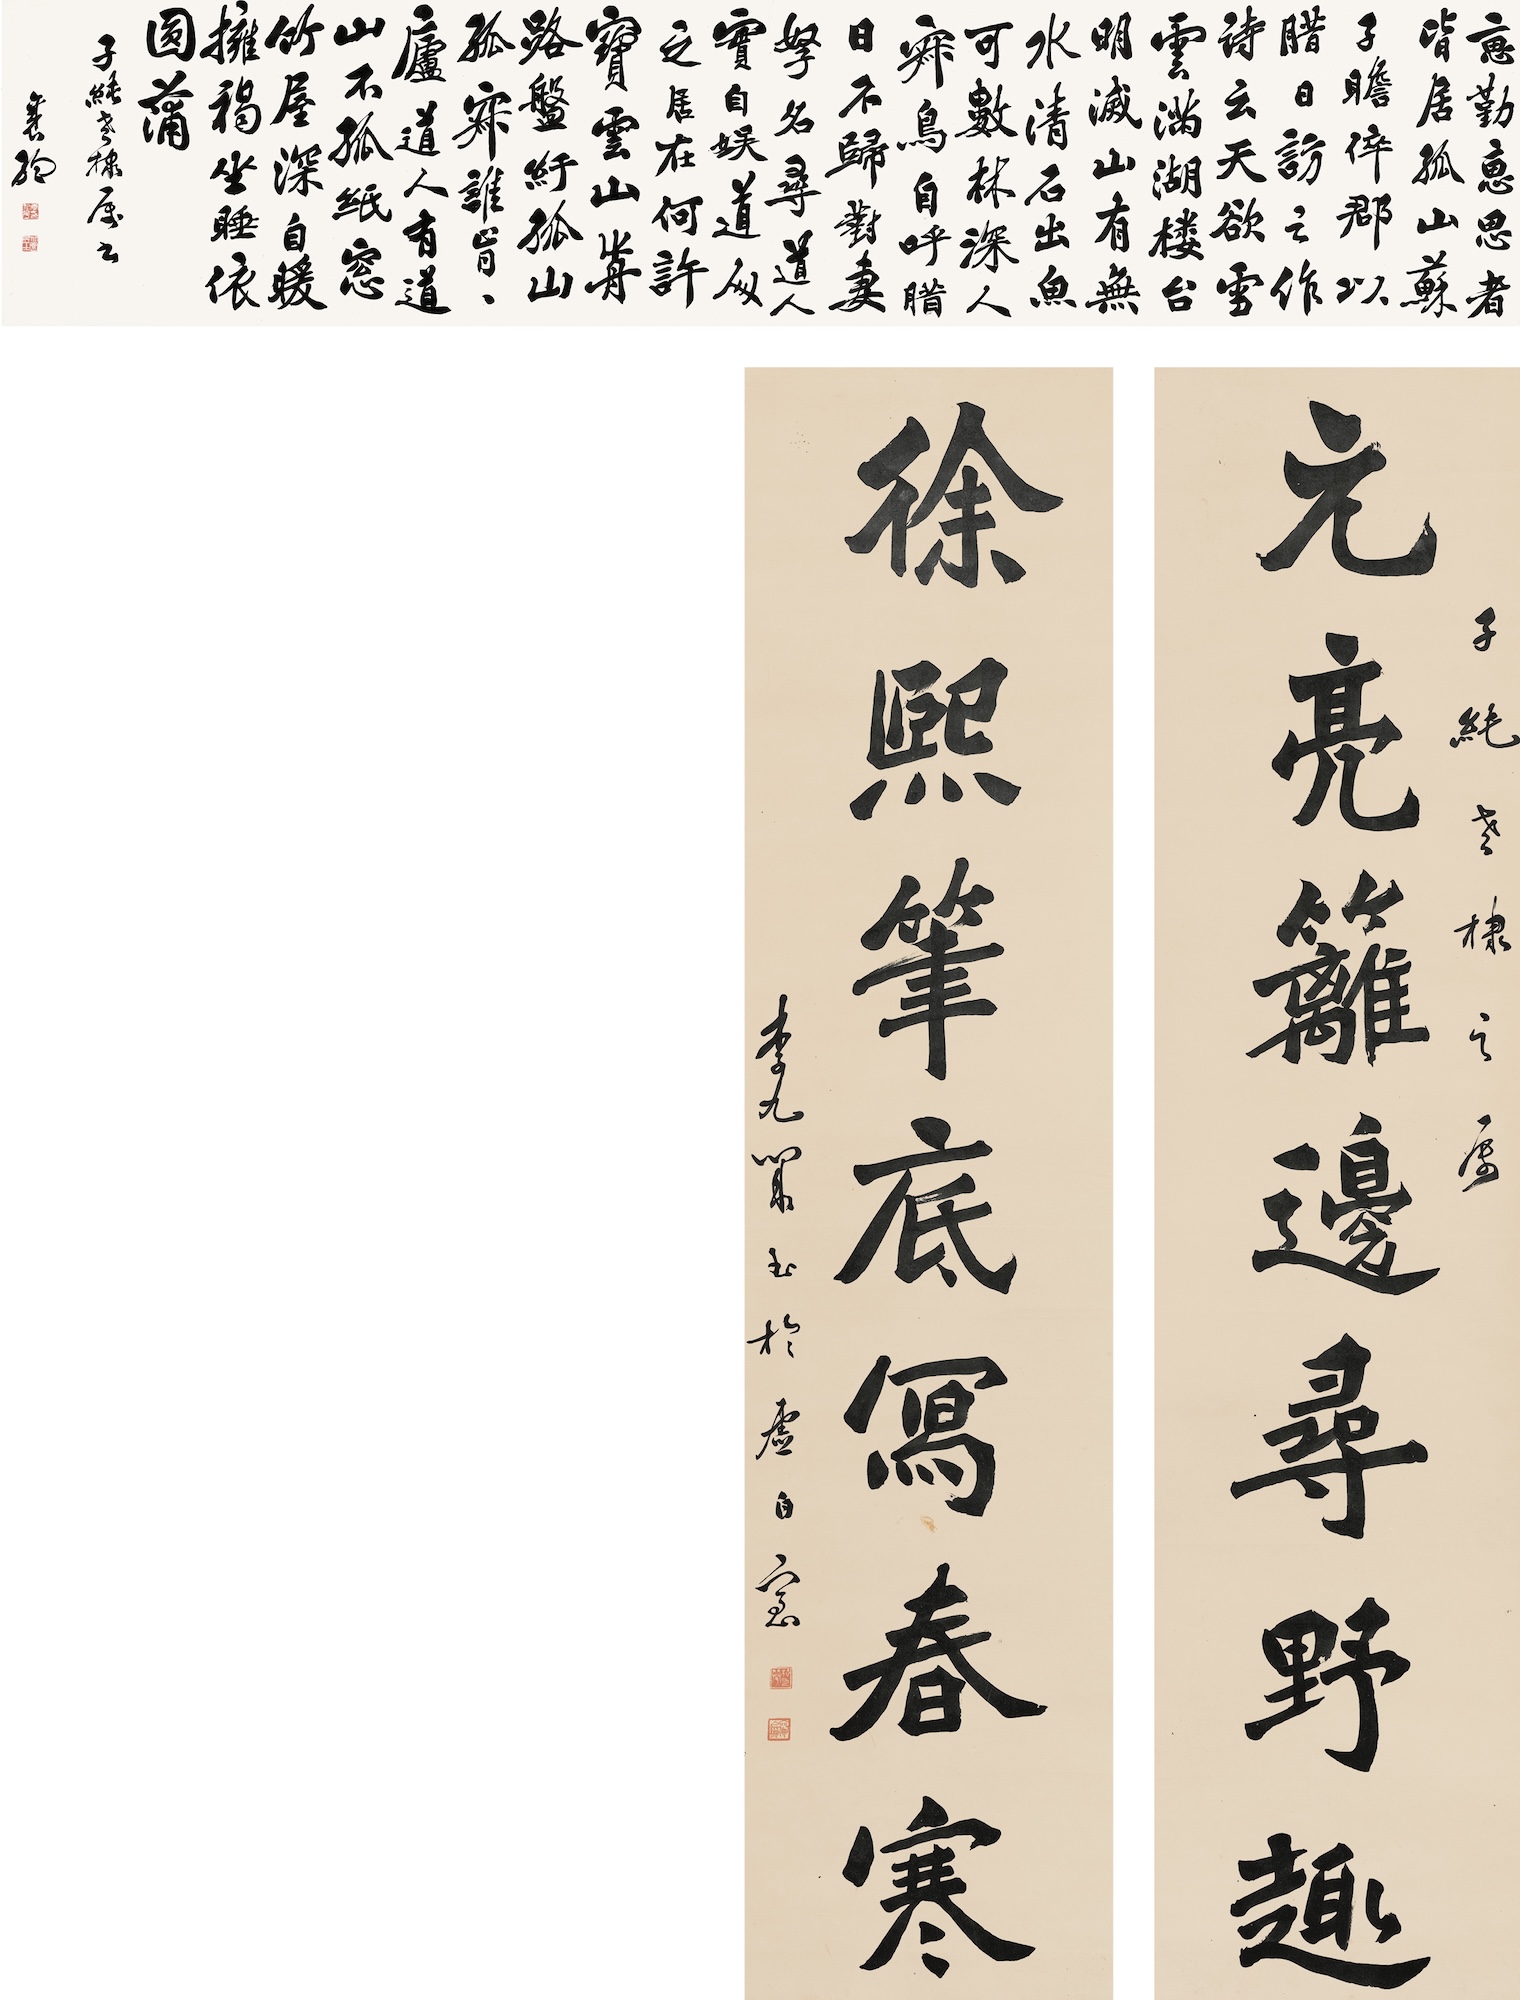 惠勤惠思者
皆居孤山蘇
子瞻倅郡以
腊日訪之作
诗云天欲雪
雲滿湖楼台
明滅山有無
水清石出魚
可數林深人
寂鳥自呼腊
日不歸對妻
孥名尋道人
實自娱道人
之居在何許
寶雲山前
路盤紆孤山
孤寂誰肯、
廬道人有道
山不孤紙窓
竹屋深自暖
擁褐坐睡依
圓蒲
子純老棣属书
元亮籬邊尋野趣
子純老棣之属
徐熙筆底寫春寒
李九 書於虛白